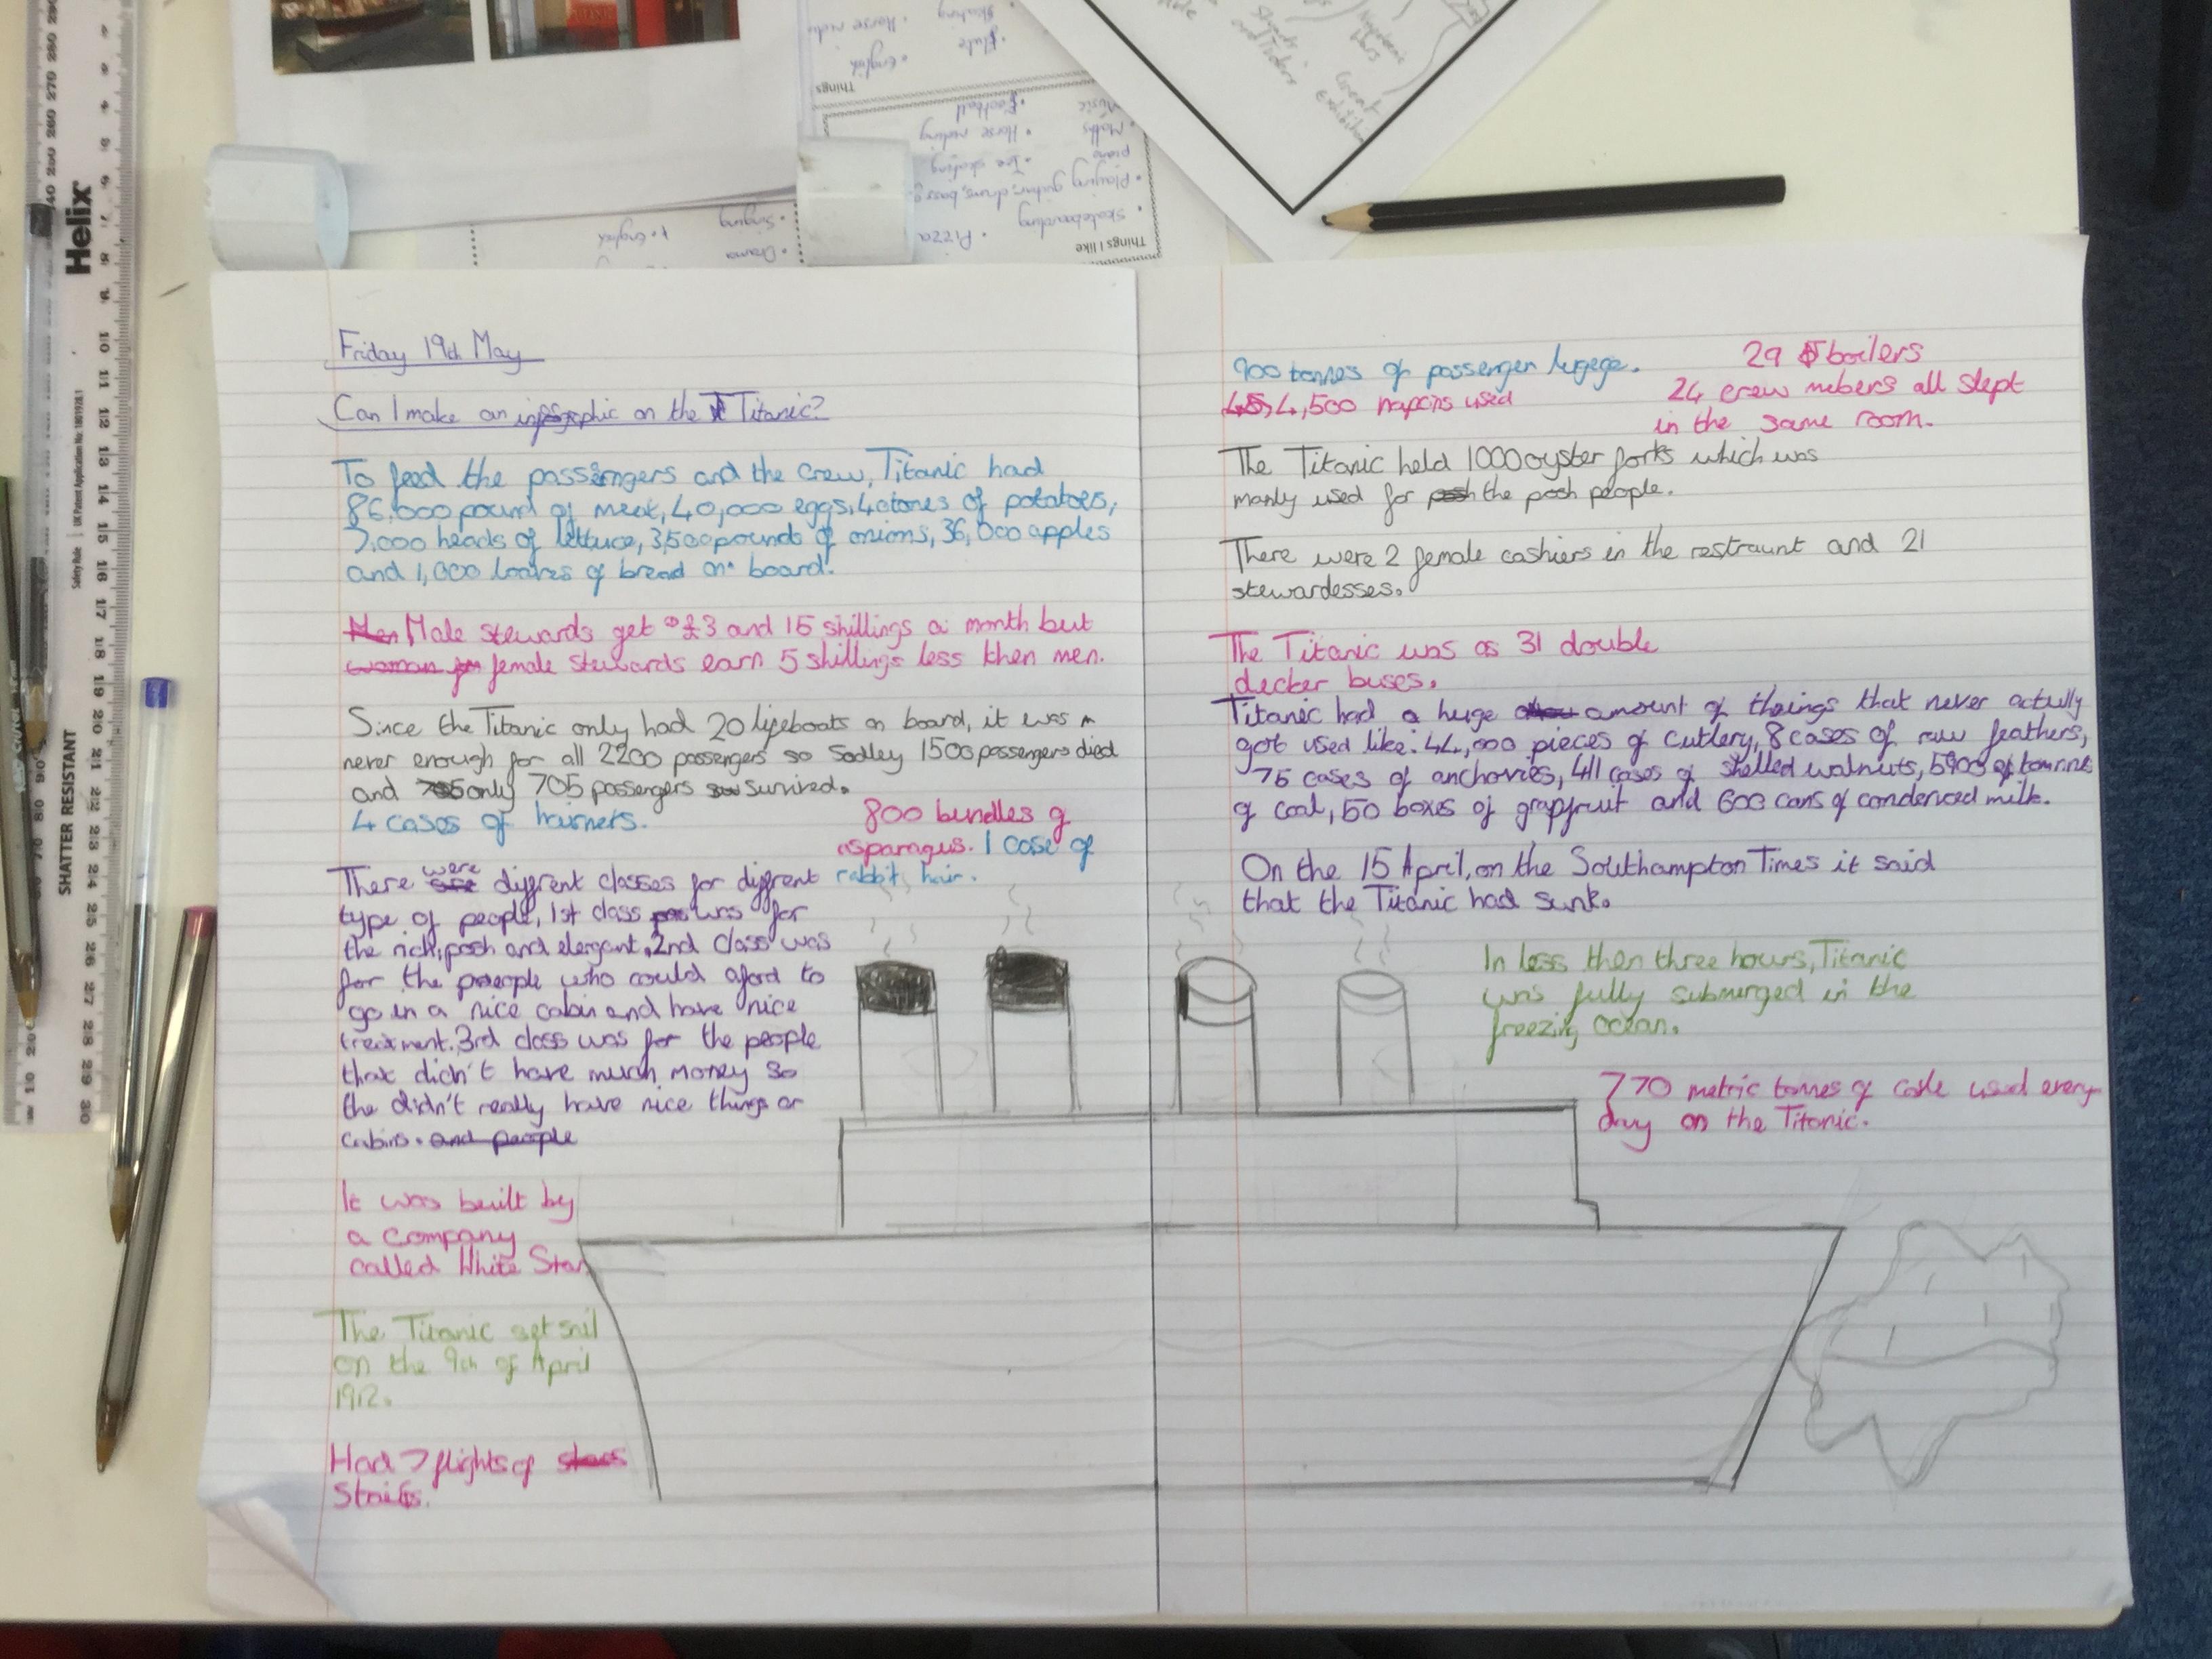 Friday 19th May
Can I make an infographic on the Titanic?
To feed the passengers and the crew, Titanic had
86,000 pound of meat, 40,000 eggs, 40 tones of potatoes,
7,000 heads of lettuce, 3,500 pounds of onions, 36,000 apples
and 1,000 loaves of bread on board.
Men Male stewards get £3 and 15 shillings a month but
woman female stewards earn 5 shillings less then men.
Since the Titanic only had 20 lifeboats on board, it was
never enough for all 2200 passengers so Sadley 1500 passengers died
and 705 only 705 passengers survived.
4 cases of hairnets.
800 bundles of
asparagus. 1 case of
rabbit hair.
There were diffrent classes for diffrent
type of people, 1st class was for
the rich, posh and elergant. 2nd class was
for the people who could aford to
go in a nice cabin and have nice
treatment. 3rd class was for the people
that didn't have much money so
the didn't really have nice things or
cabins. and people
It was built by
a company
called White Star
The Titanic set sail
on the 9th of April
1912.
Had 7 flights of stars
Stairs.
900 tonnes of passenger lugege.
45, 4,500 napcins used
29 boilers
24 crew mebers all slept
in the same room.
The Titanic held 1000 oyster forks which was
manly used for posh the posh people.
There were 2 female cashiers in the restraunt and 21
stewardesses.
The Titanic was as 31 double
decker buses.
Titanic had a huge amount of things that never actully
got used like: 44,000 pieces of cutlery, 8 cases of raw feathers,
75 cases of anchovies, 411 cases of shelled walnuts, 5900 of tonnes
of coal, 50 boxes of grapfruit and 600 cans of condenced milk.
On the 15 April, on the Southampton Times it said
that the Titanic had sunk.
In less then three hours, Titanic
was fully submerged in the
freezing ocean.
770 metric tonnes of cole used every
day on the Titanic.
Helix
Safety Rule | UK Patent Application No: 1801928.1
SHATTER RESISTANT
Things I like
Skateboarding
Pizza
Playing guitar, drums, bass
piano
Ice skating
Maths
Horse riding
Music
Football
Things
English
Flute
Skating
Drama
Singing
English
Great
Exhibition